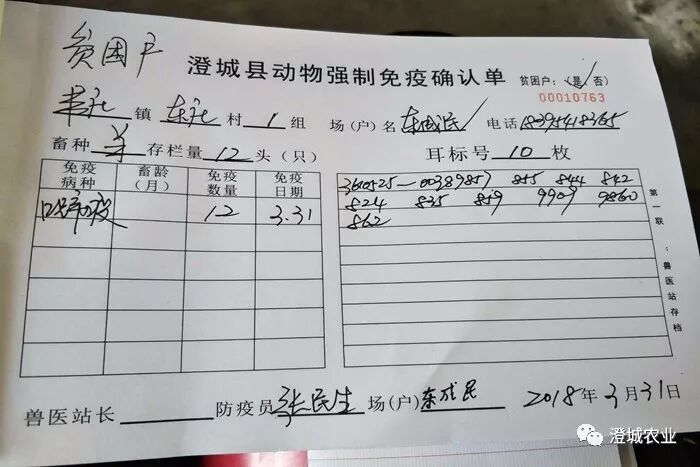 贫困户
澄城县动物强制免疫确认单 贫困户:(是/否)
00010763
镇 东社 村 1 组 场(户)名 东成民 电话 18395418365
畜种 羊 存栏量 12 头(只) 耳标号 10 枚
免疫病种 畜龄(月) 免疫数量 免疫日期
口蹄疫 12 3.31
3610525-00389857 855 844 842
824 835 859 9909 9860
862
第一联:兽医站存档
兽医站长 防疫员 张民生 场(户) 东成民 2018年3月31日
澄城农业